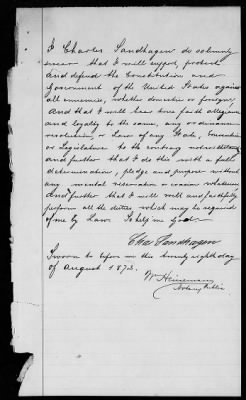 I Charles Sandhagen do solemnly
swear that I will support, protect
and defend the Constitution and
Government of the United States against
all enemies, whether domestic or foreign,
and that I will bear true faith allegiance
and loyalty to the same, any ordinance
resolution or Law of any State, Convention
or Legislature to the contrary notwithstanding
and further that I do this with a full
determination, pledge and purpose without
any mental reservation or evasion whatsoever
and further that I will well and faithfully
perform all the duties which may be required
of me by Law. So help me God
Chas Sandhagen
Sworn to before me this twenty eighth day
of August 1872.
W. Heinemann
Notary Public